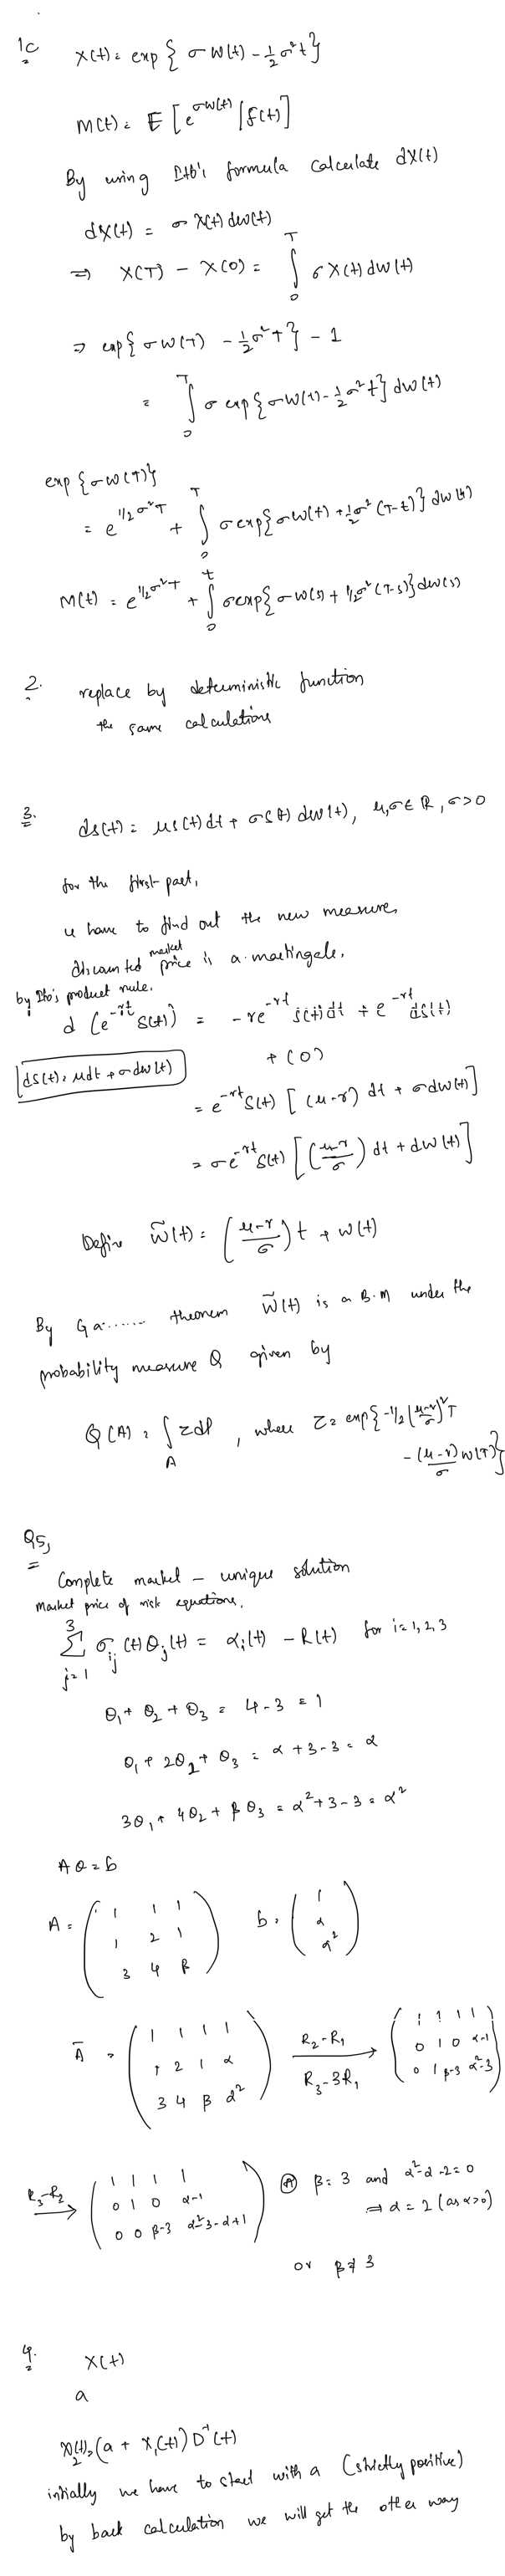 1c X(t) = exp { σ W(t) - 1/2 σ² t }
M(t) = E [ e^{σW(t)} | f(t) ]
By using Itô's formula calculate dX(t)
dX(t) = σ X(t) dw(t)
⇒ X(T) - X(0) = ∫_0^T σ X(t) dw(t)
⇒ exp{ σ w(T) - 1/2 σ² T } - 1
= ∫_0^T σ exp{ σw(t) - 1/2 σ² t } dw(t)
exp { σw(T) }
= e^{1/2 σ² T} + ∫_0^T σ exp{ σw(t) + 1/2 σ² (T-t) } dw(t)
M(t) = e^{1/2 σ² T} + ∫_0^t σ exp{ σ w(s) + 1/2 σ² (T-s) } dw(s)
2. replace by deterministic function
the same calculations
3. ds(t) = μs(t) dt + σs(t) dw(t), μ, σ ∈ R, σ>0
for the first part,
we have to find out the new measure,
discounted market price is a martingale.
by Ito's product rule.
d (e^{-rt} S(t)) = -re^{-rt} s(t) dt + e^{-rt} ds(t)
+ (0)
ds(t) = μdt + σdw(t)
= e^{-rt} S(t) [ (μ-r) dt + σdw(t) ]
= σe^{-rt} S(t) [ ((μ-r)/σ) dt + dW(t) ]
Define W̃(t) = ((μ-r)/σ) t + w(t)
By Ga...... theorem W̃(t) is a B.M under the
probability measure Q given by
Q(A) = ∫_A zdP , where Z = exp{ -1/2 ((μ-r)/σ)² T
- ((μ-r)/σ) w(T) }
Q5,
Complete market - unique solution
Market price of risk equations,
∑_{j=1}^{3} σ_ij (t) θ_j (t) = α_i (t) - R(t) for i = 1, 2, 3
θ₁ + θ₂ + θ₃ = 4 - 3 = 1
θ₁ + 2θ₂ + θ₃ = α + 3 - 3 = α
3θ₁ + 4θ₂ + β θ₃ = α² + 3 - 3 = α²
A θ = b
A = ( 1 1 1 b = ( 1
1 2 1 α
3 4 β ) α² )
Ā = ( 1 1 1 1 R₂-R₁ ( 1 1 1 1
1 2 1 α → 0 1 0 α-1
3 4 β α² ) R₃-3R₁ 0 1 β-3 α²-3 )
R₃-R₂ → ( 1 1 1 1 β = 3 and α²-α-2 = 0
0 1 0 α-1 ⇒ α = 2 (as α>0)
0 0 β-3 α²-3-α+1 )
or β ≠ 3
4. X(t)
a
X₂(t) = (a + X₁(t)) D⁻¹(t)
initially we have to start with a (strictly positive)
by back calculation we will get the other way